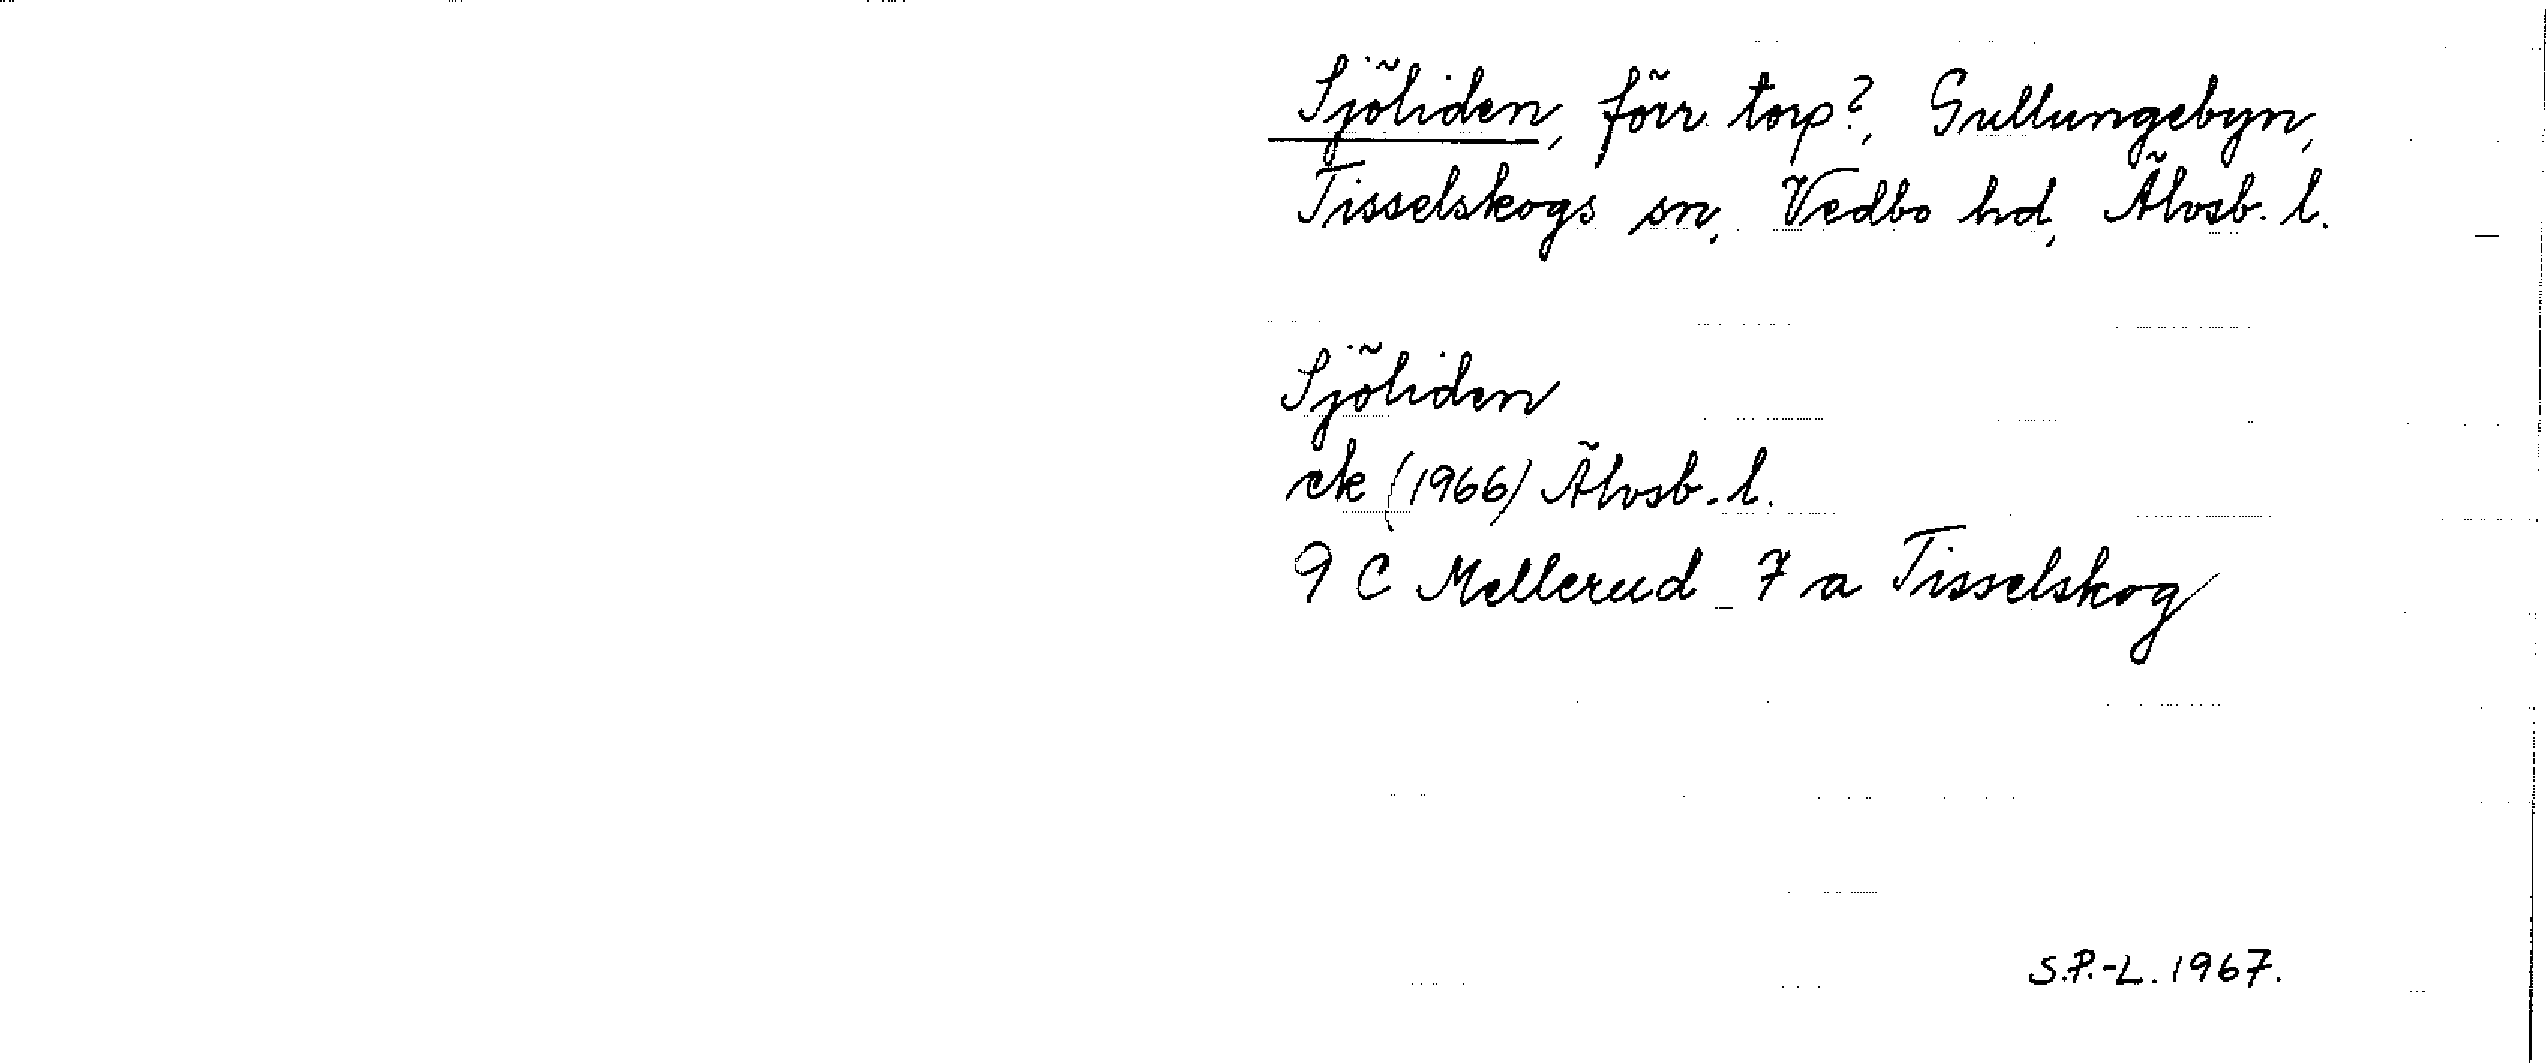 Sjöliden, förr torp?, Gullungebyn,
Tisselskogs sn, Vedbo hd, Älvsb. l.
Sjöliden
ek (1966) Älvsb. l.
9 C Mellerud 7 a Tisselskog
S.P.-L. 1967.